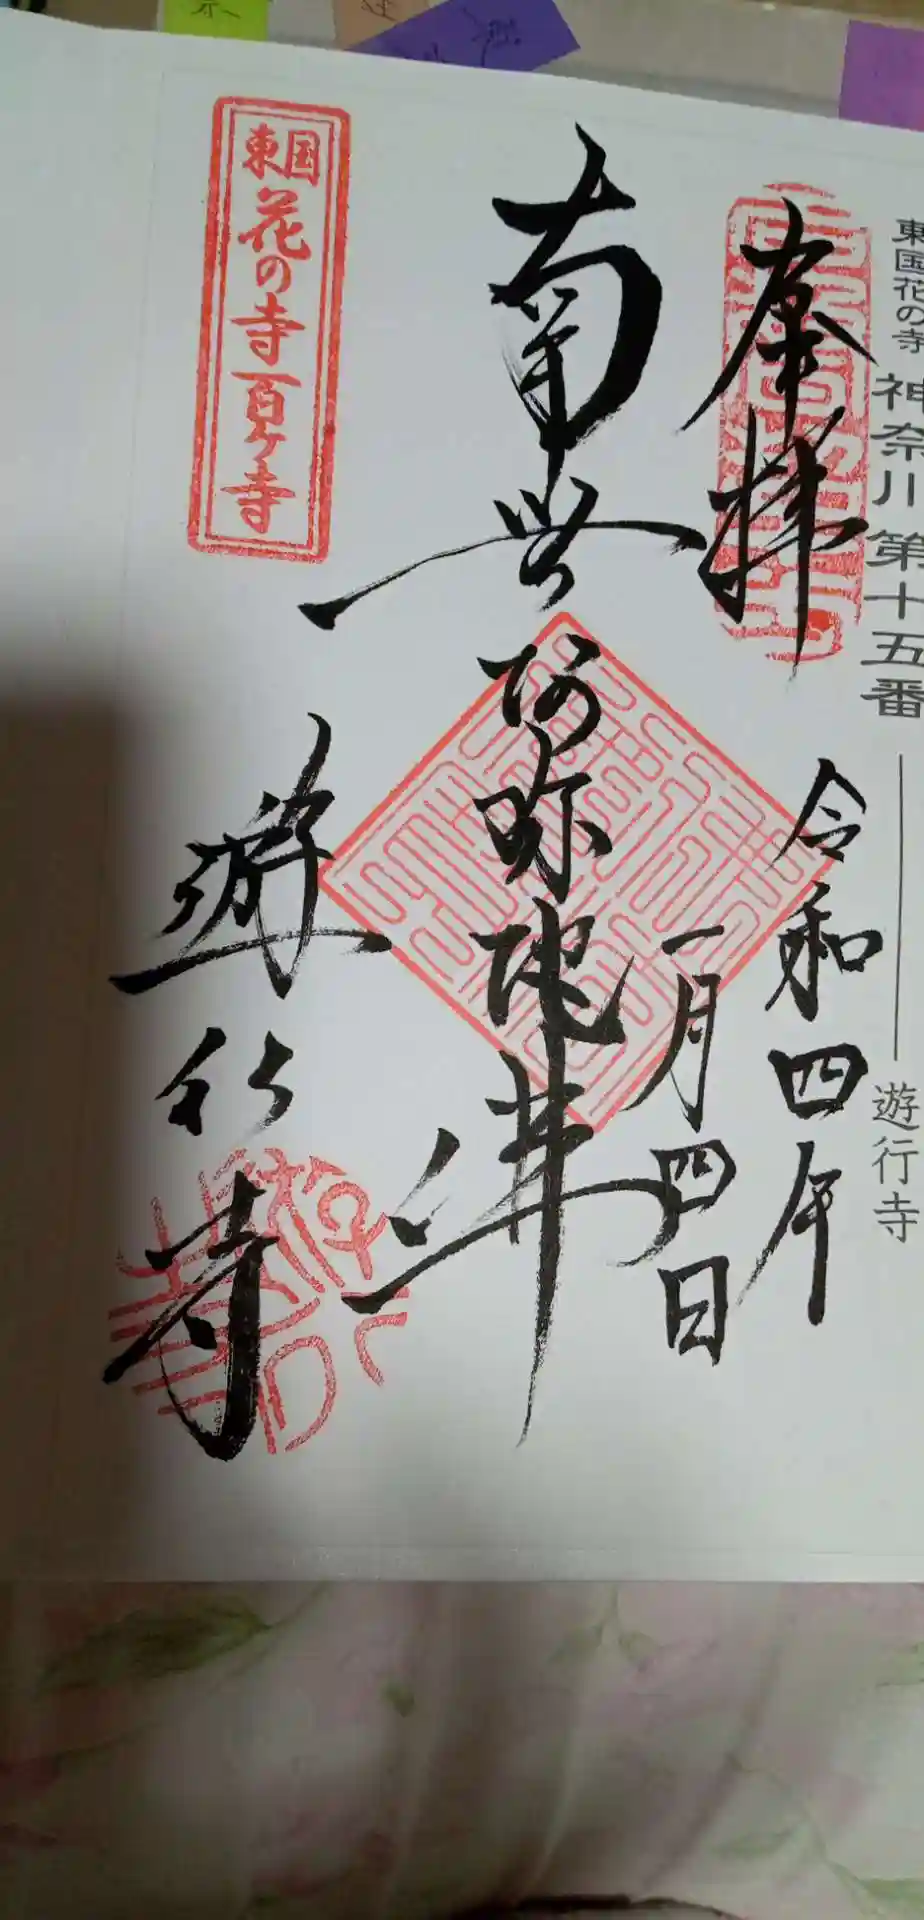 東国花の寺 神奈川第十五番 遊行寺
奉拝
令和四年
一月四日
南無阿弥陀佛
東国花の寺百ヶ寺
遊行寺